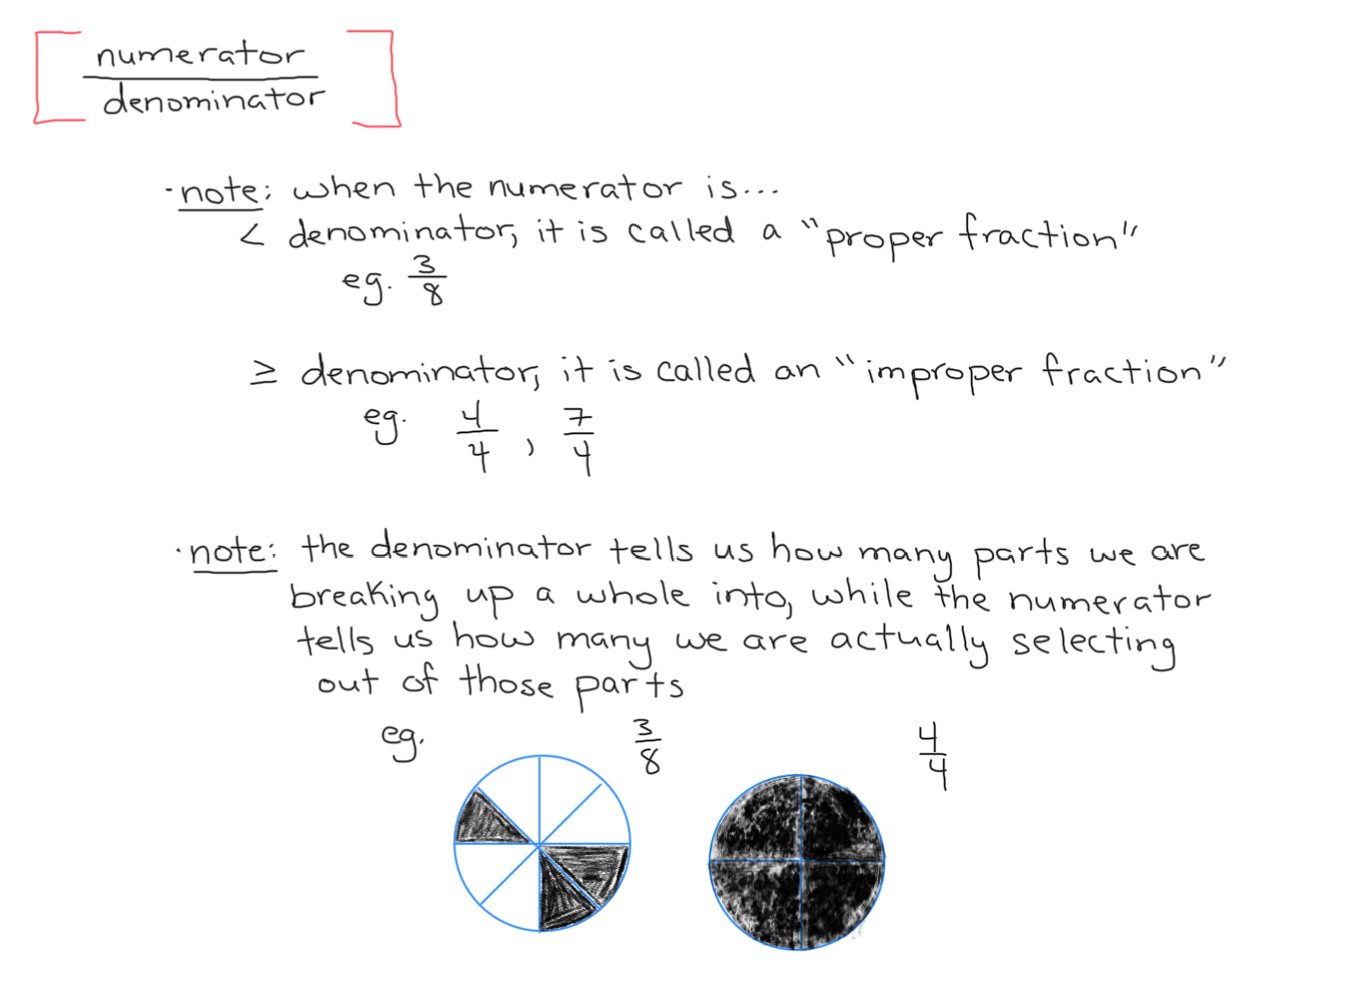 numerator
denominator
·note: when the numerator is...
< denominator, it is called a "proper fraction"
eg. 3/8
≥ denominator, it is called an "improper fraction"
eg. 4/4 , 7/4
·note: the denominator tells us how many parts we are
breaking up a whole into, while the numerator
tells us how many we are actually selecting
out of those parts
eg. 3/8 4/4